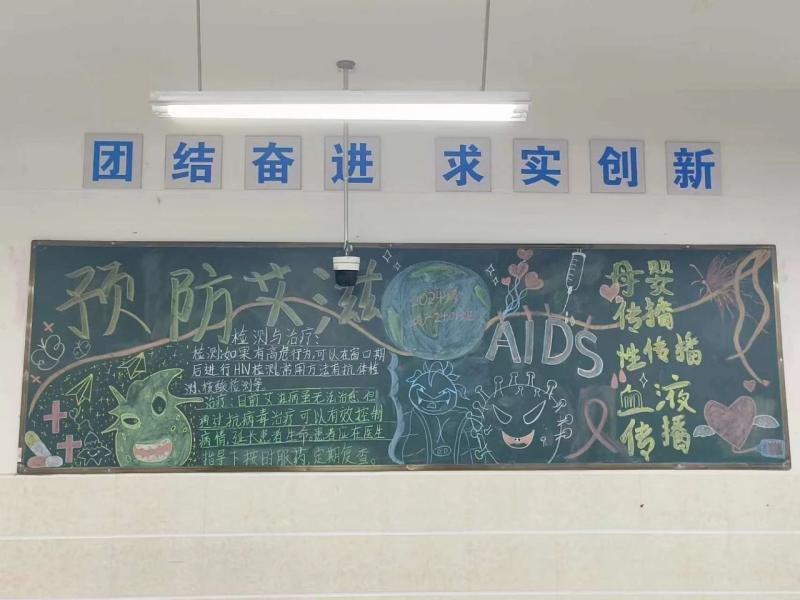 团结奋进 求实创新
预防艾滋
检测与治疗:
检测:如果有高危行为,可以在窗口期
后进行HIV检测,常用方法有抗体检
测、核酸检测等。
治疗:目前艾滋病虽无法治愈,但
通过抗病毒治疗可以有效控制
病情,延长患者生命,患者应在医生
指导下按时服药,定期复查。
AIDS
母婴
传播
性传播
血液
传播